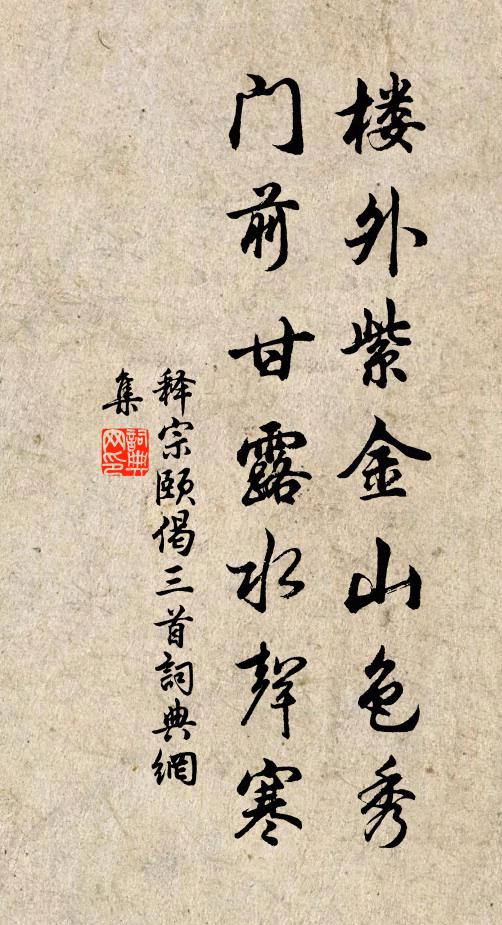 楼外紫金山色秀
门前甘露水聲寒
释宗颐偈三首詞典網
集
詞典
网印